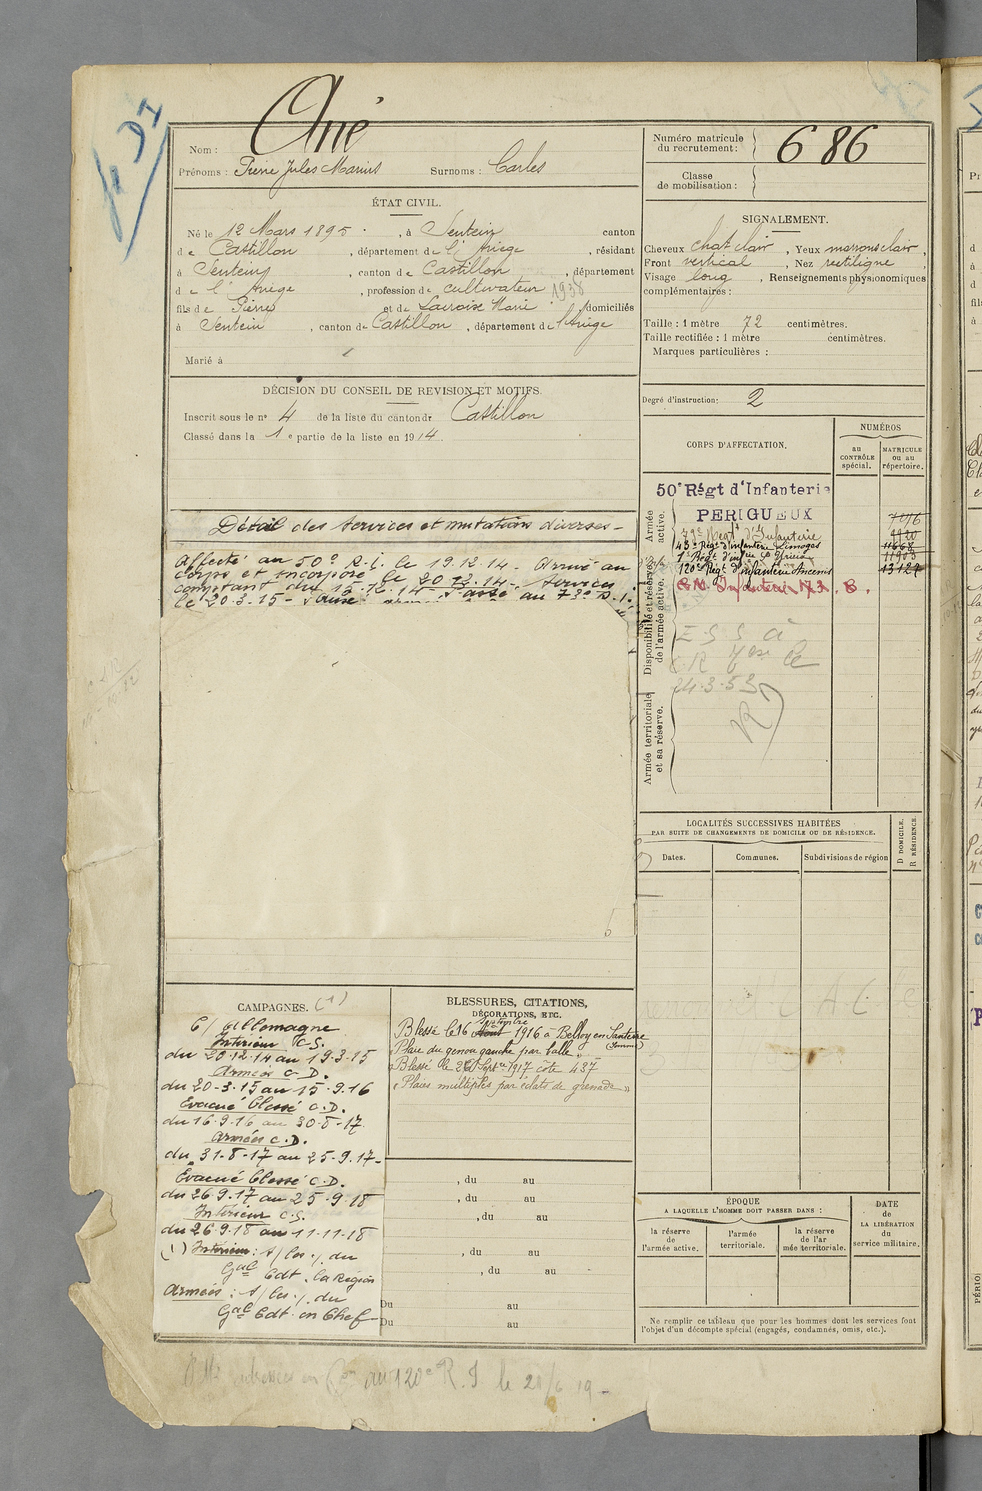 Nom : Ané
Prénoms : Pierre Jules Marius Surnoms : Carles
Numéro matricule du recrutement : 686
Classe de mobilisation :
ÉTAT CIVIL.
Né le 12 Mars 1895, à Sentein canton
de Castillon, département de l'Ariège, résidant
à Sentein, canton de Castillon, département
de l'Ariège, profession de cultivateur 1938
fils de Pierre et de Lacroix Marie domiciliés
à Sentein, canton de Castillon, département de l'Ariège
Marié à
DÉCISION DU CONSEIL DE REVISION ET MOTIFS.
Inscrit sous le n° 4 de la liste du canton de Castillon
Classé dans la 1e partie de la liste en 1914.
SIGNALEMENT.
Cheveux chat clair, Yeux marrons clair,
Front vertical, Nez rectiligne
Visage long, Renseignements physionomiques
complémentaires :
Taille : 1 mètre 72 centimètres.
Taille rectifiée : 1 mètre centimètres.
Marques particulières :
Degré d'instruction : 2
Détail des services et mutations diverses -
Affecté au 50e R.I. le 19.12.14. Arrivé au
corps et incorporé le 20.12.14. Services
comptant du 15.12.14. Passé au 73e R.I.
le 20-3-15-
CORPS D'AFFECTATION.
NUMÉROS
au CONTRÔLE spécial.
MATRICULE ou au répertoire.
Armée active.
Disponibilité et réserve de l'armée active.
Armée territoriale et sa réserve.
50e Régt d'Infanterie
PERIGUEUX
73e Régt d'Infanterie
43e Régt d'infanterie Limoges
120e Régt d'infanterie Ancenis 13127
R.M. Infanterie 173. B.
24.3.53
LOCALITÉS SUCCESSIVES HABITÉES
PAR SUITE DE CHANGEMENTS DE DOMICILE OU DE RÉSIDENCE.
Dates.
Communes.
Subdivisions de région
D DOMICILE.
R RÉSIDENCE.
CAMPAGNES. (1)
C/ Allemagne
Intérieur C.S.
du 20.12.14 au 19.3.15
Armées C.D.
du 20-3-15 au 15-9-16
Evacué blessé C.D.
du 16.9.16 au 30-8-17
Armées C.D.
du 31-8-17 au 25-9-17-
Evacué blessé C.D.
du 26 9.17 au 25-9-18
Intérieur C.S.
du 26 9-18 au 11-11-18
(1) Intérieur : s/les./. du
Gal Cdt. la Région
Armées : s/les./. du
Gal Cdt. en Chef-
BLESSURES, CITATIONS,
DÉCORATIONS, ETC.
Blessé le 16 Août septembre 1916 à Belloy en Santerre (Somme)
"Plaie du genou gauche par balle"
Blessé le 26 Septbre 1917 côte 437
"Plaies multiples par éclats de grenade"
, du au
, du au
, du au
, du au
, du au
Du au
Du au
ÉPOQUE
A LAQUELLE L'HOMME DOIT PASSER DANS :
la réserve de l'armée active.
l'armée territoriale.
la réserve de l'armée territoriale.
DATE de LA LIBÉRATION du service militaire.
Ne remplir ce tableau que pour les hommes dont les services font
l'objet d'un décompte spécial (engagés, condamnés, omis, etc.).
au 120e R.I. le